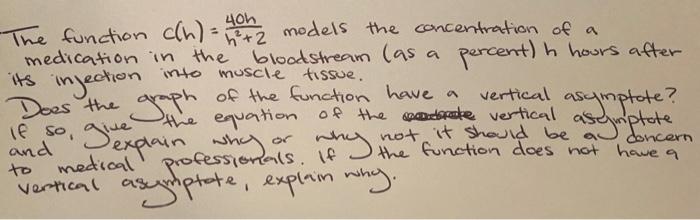 The function c(h) = 40h/(h²+2) models the concentration of a
medication in the bloodstream (as a percent) h hours after
its injection into muscle tissue.
Does the graph of the function have a vertical asymptote?
If so, give the equation of the vertical asymptote
and explain why or why not it should be a concern
to medical professionals. If the function does not have a
vertical asymptote, explain why.